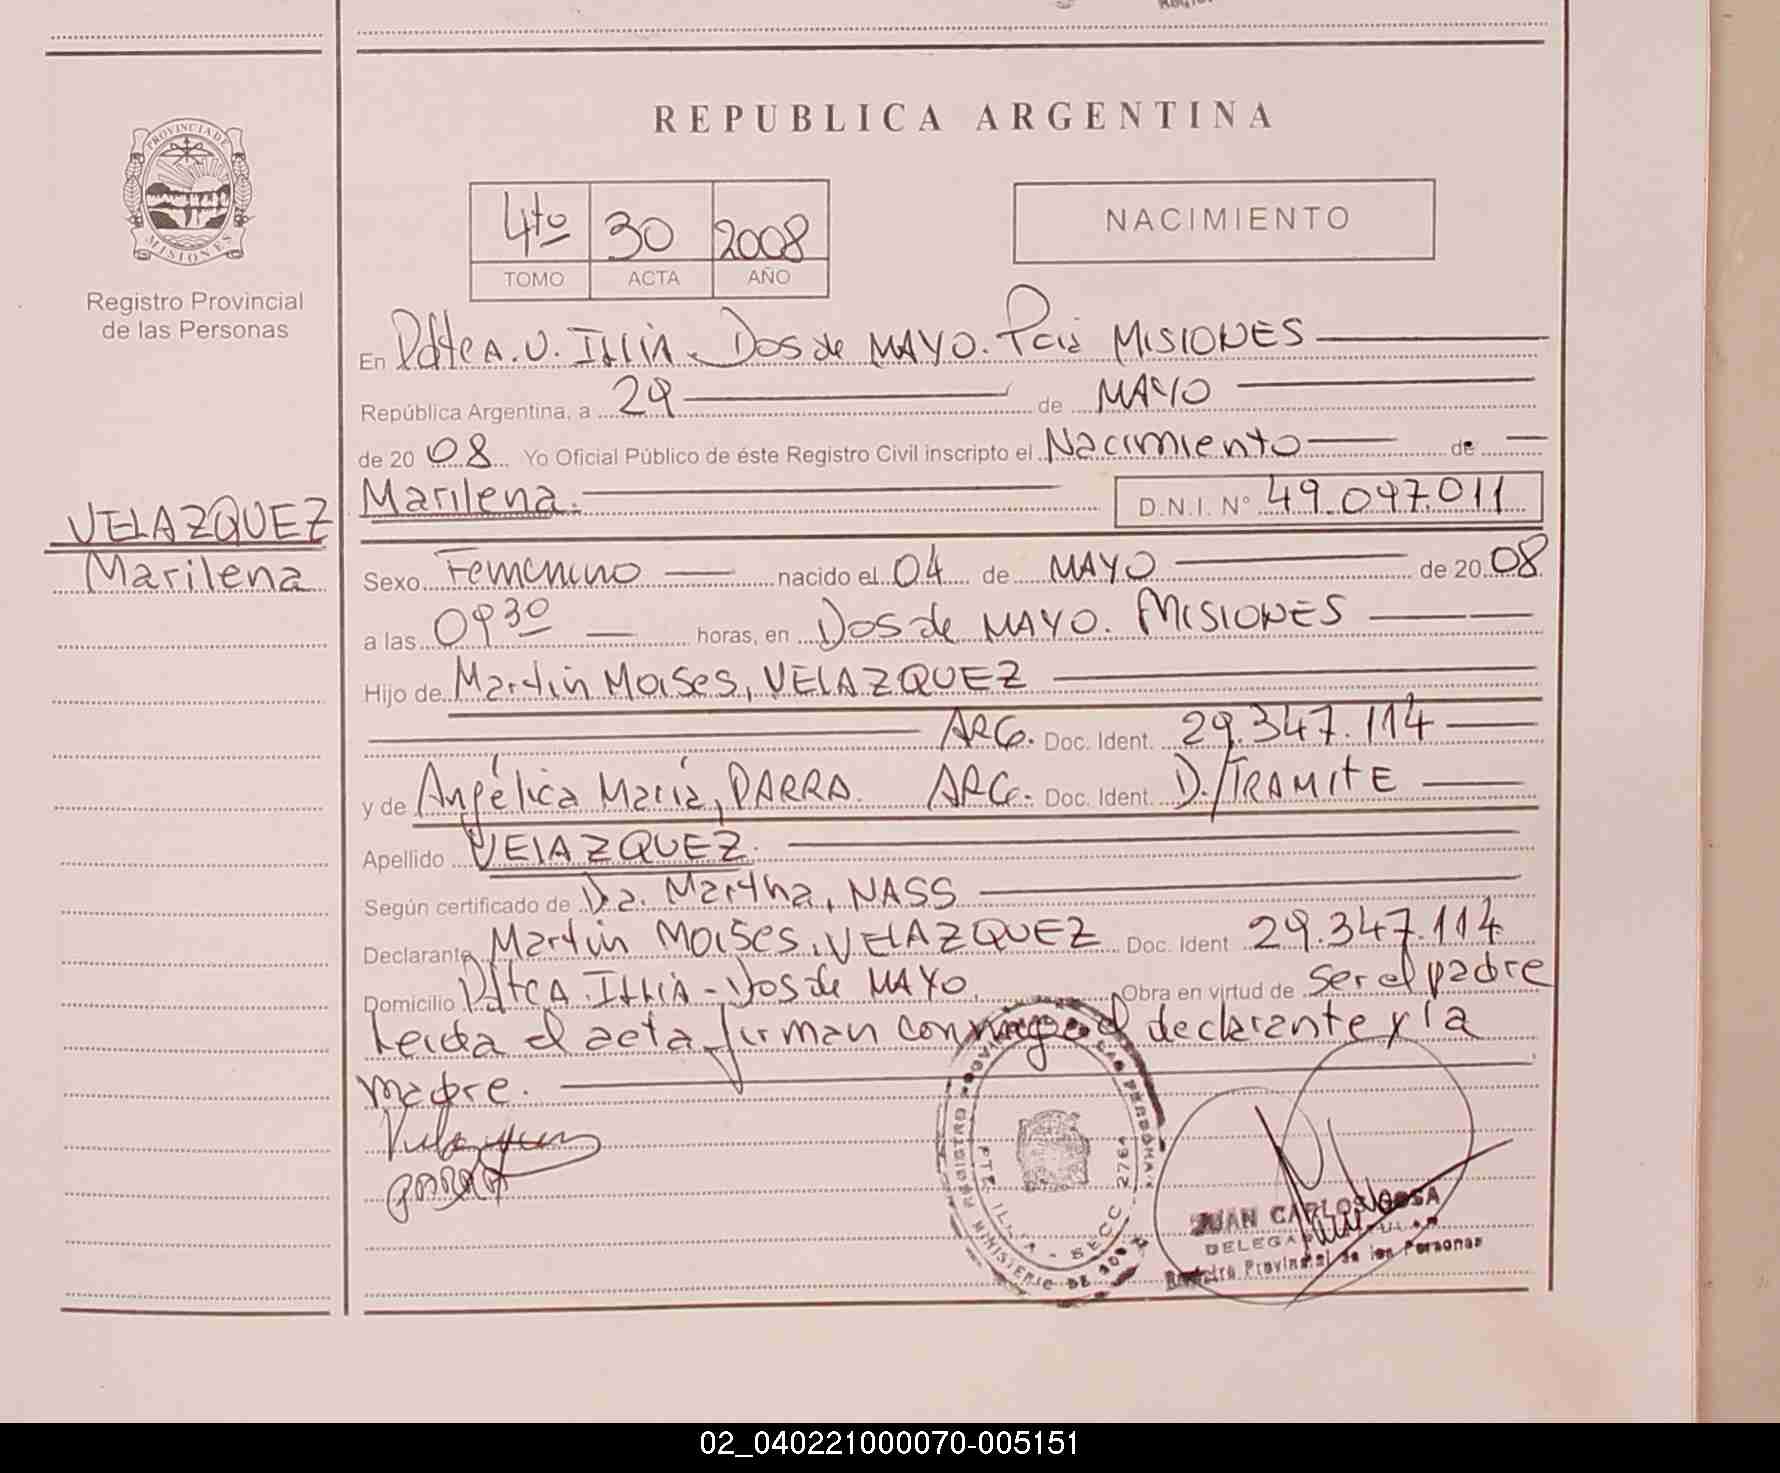 REPUBLICA ARGENTINA
PROVINCIA DE
MISIONES
Registro Provincial
de las Personas
4to 30 2008
TOMO ACTA AÑO
NACIMIENTO
En Pdte A. U. ILLIA. Dos de MAYO. Pcia MISIONES
República Argentina, a 29 de MAYO
de 20 08 Yo Oficial Público de éste Registro Civil inscripto el Nacimiento de
Marilena. D.N.I. N° 49.097.011
VELAZQUEZ
Marilena
Sexo Femenino nacido el 04 de MAYO de 20 08
a las 09 30 horas, en Dos de MAYO. MISIONES
Hijo de Martin Moises, VELAZQUEZ
ARG. Doc. Ident. 29.347.114
y de Angélica María, PARRA. ARG. Doc. Ident. D./TRAMITE
Apellido VELAZQUEZ.
Según certificado de Dra. Martha, NASS
Declarante Martin Moises, VELAZQUEZ Doc. Ident 29.347.114
Domicilio Pdte A. ILLIA - Dos de MAYO. Obra en virtud de ser el padre
Leida el acta firman conmigo el declarante y la
madre.
PARRA
REGISTRO PROVINCIAL DE LAS PERSONAS
PTE. ILLIA - SECC 2761
MINISTERIO DE GOB.
JUAN CARLOS SOSA
DELEGADO TITULAR
Registro Provincial de las Personas
02_040221000070-005151